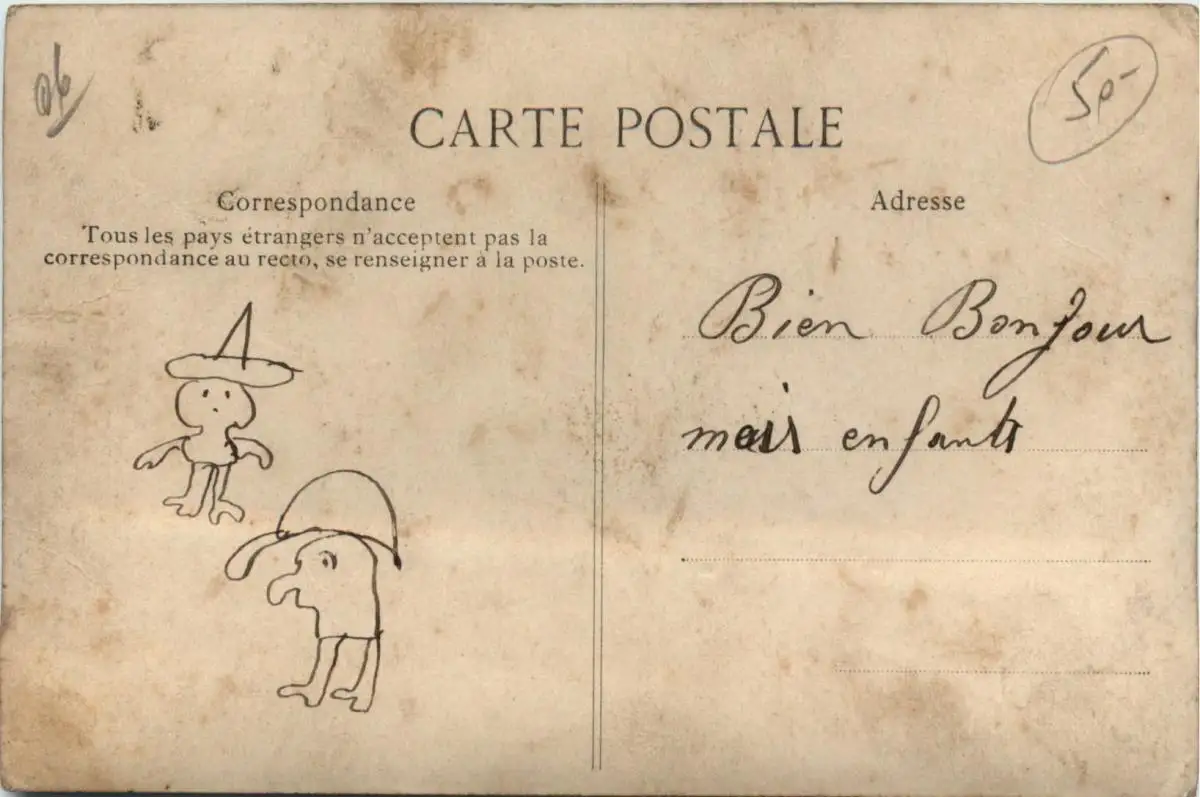 06
50-
CARTE POSTALE
Correspondance
Tous les pays étrangers n'acceptent pas la
correspondance au recto, se renseigner à la poste.
Adresse
Bien Bonjour
meis enfants